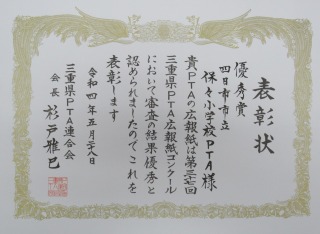 表彰状
優秀賞
四日市市立
保々小学校PTA様
貴PTAの広報紙は第三七回
三重県PTA広報紙コンクール
において審査の結果優秀と
認められましたのでこれを
表彰します
令和四年五月二十八日
三重県PTA連合会
会長 杉戸雅巳